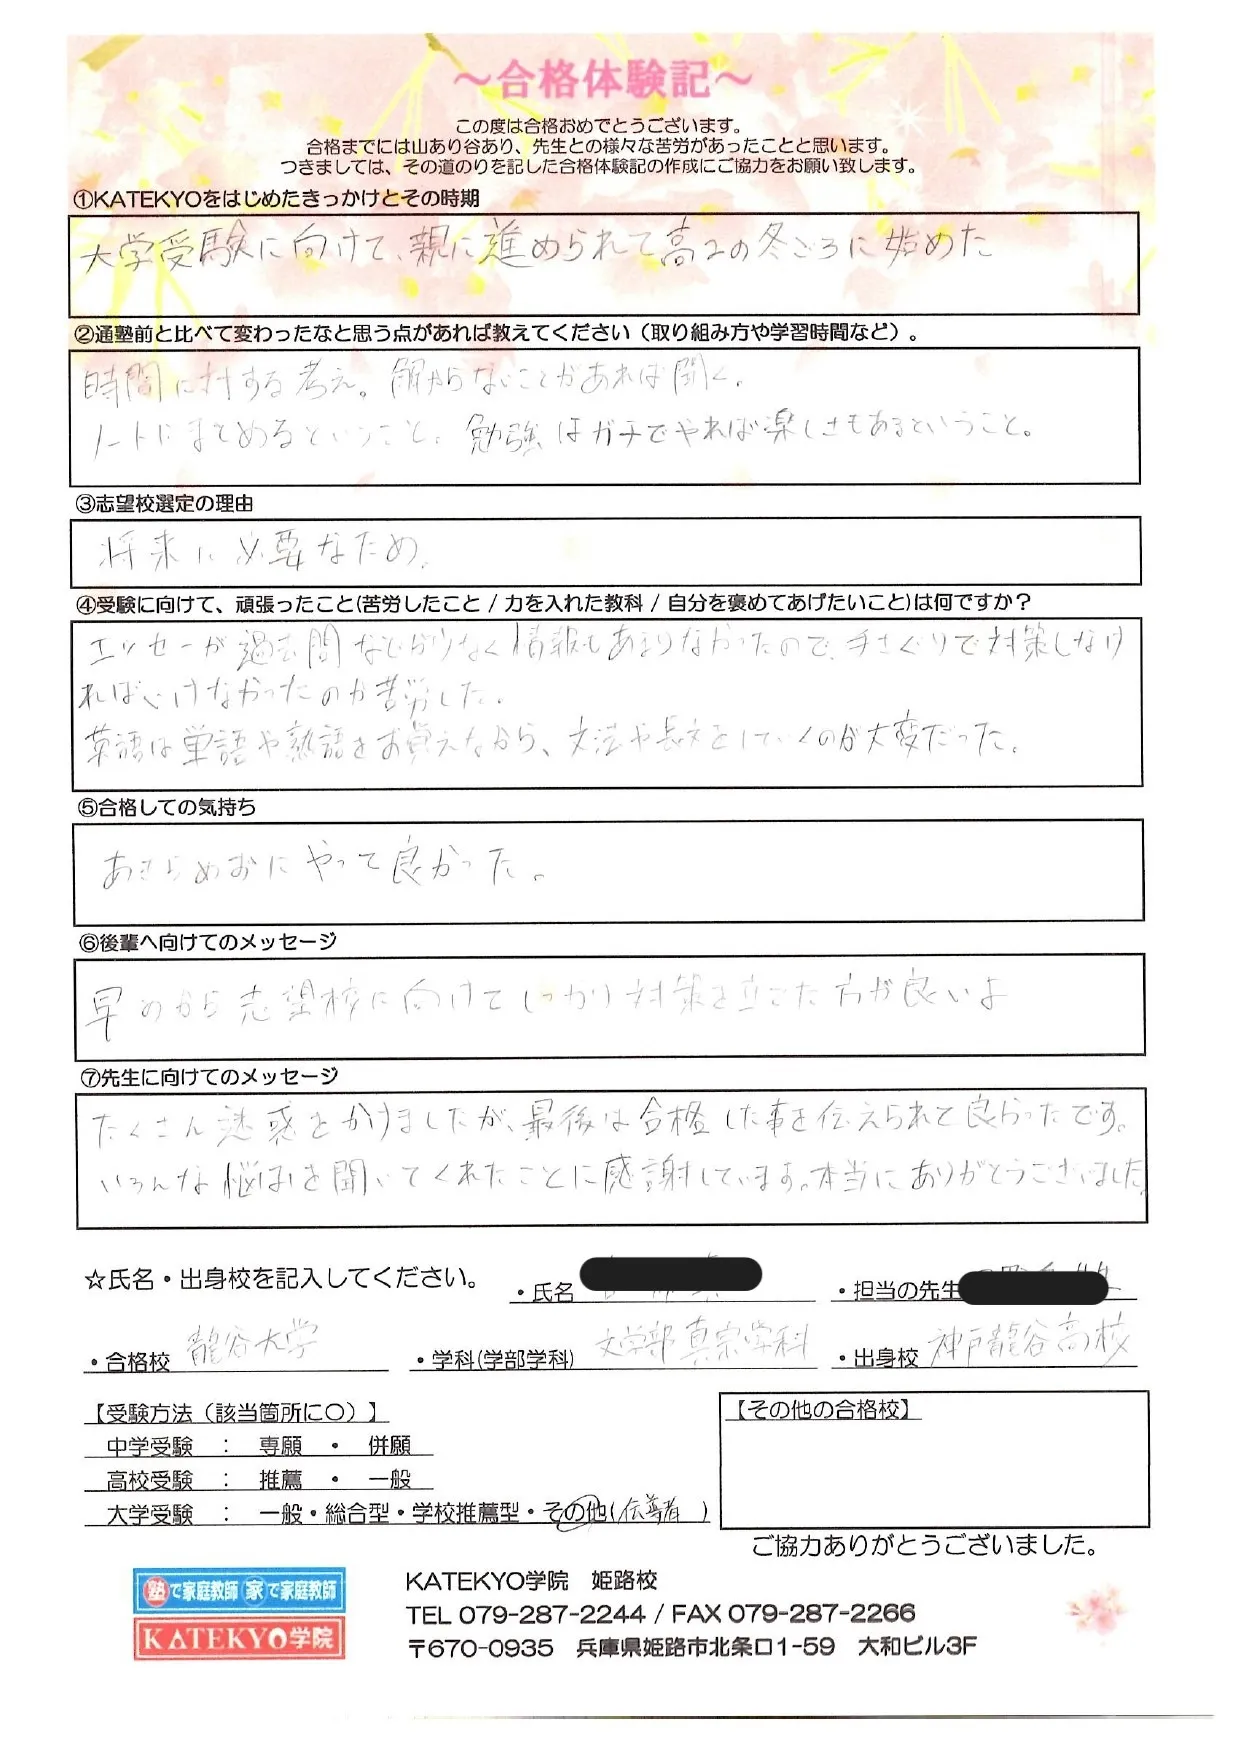 ～合格体験記～
この度は合格おめでとうございます。
合格までには山あり谷あり、先生との様々な苦労があったことと思います。
つきましては、その道のりを記した合格体験記の作成にご協力をお願い致します。
①KATEKYOをはじめたきっかけとその時期
大学受験に向けて、親に進められて高2の冬ごろに始めた
②通塾前と比べて変わったなと思う点があれば教えてください（取り組み方や学習時間など）。
時間に対する考え。解からないことがあれば聞く。
ノートにまとめるということ。勉強はガチでやれば楽しさもあるということ。
③志望校選定の理由
将来に必要なため。
④受験に向けて、頑張ったこと(苦労したこと / 力を入れた教科 / 自分を褒めてあげたいこと)は何ですか？
エッセーが過去問などが少なく情報もあまりなかったので、手さぐりで対策しなけ
ればいけなかったのが苦労した。
英語は単語や熟語をお覚えながら、文法や長文をしていくのが大変だった。
⑤合格しての気持ち
あきらめずにやって良かった。
⑥後輩へ向けてのメッセージ
早めから志望校に向けてしっかり対策を立てた方が良いよ
⑦先生に向けてのメッセージ
たくさん迷惑をかけましたが、最後は合格した事を伝えられて良かったです。
いろんな悩みを聞いてくれたことに感謝しています。本当にありがとうございました
☆氏名・出身校を記入してください。 ・氏名 ・担当の先生
・合格校 龍谷大学 ・学科(学部学科) 文学部真宗学科 ・出身校 神戸龍谷高校
【受験方法（該当箇所に〇）】 【その他の合格校】
中学受験 ： 専願 ・ 併願
高校受験 ： 推薦 ・ 一般
大学受験 ： 一般・総合型・学校推薦型・その他(伝導者 )
ご協力ありがとうございました。
塾で家庭教師 家で家庭教師
KATEKYO学院
KATEKYO学院 姫路校
TEL 079-287-2244 / FAX 079-287-2266
〒670-0935 兵庫県姫路市北条口1-59 大和ビル3F